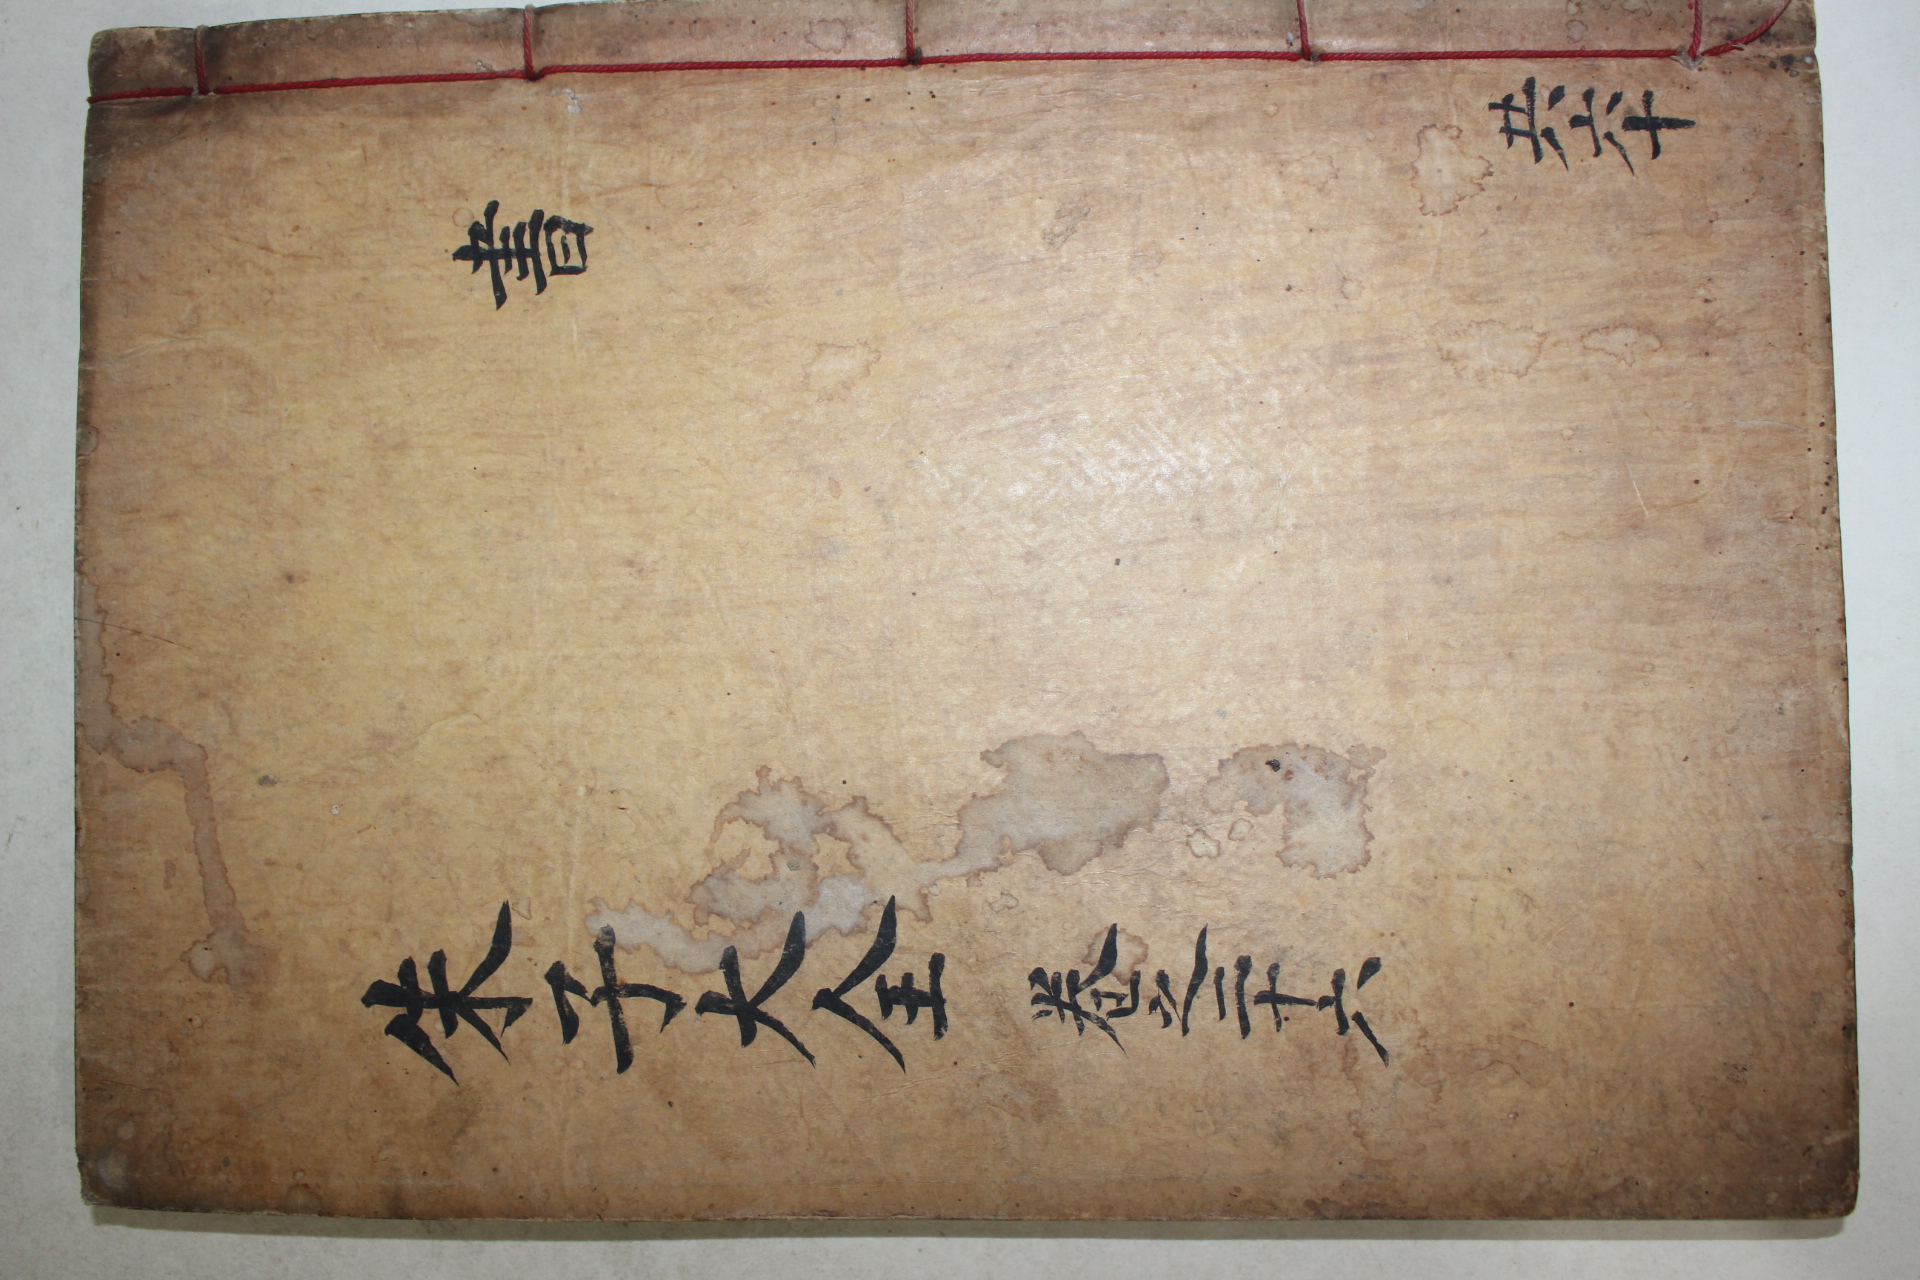 共六十
書
朱子大全 卷之二十六